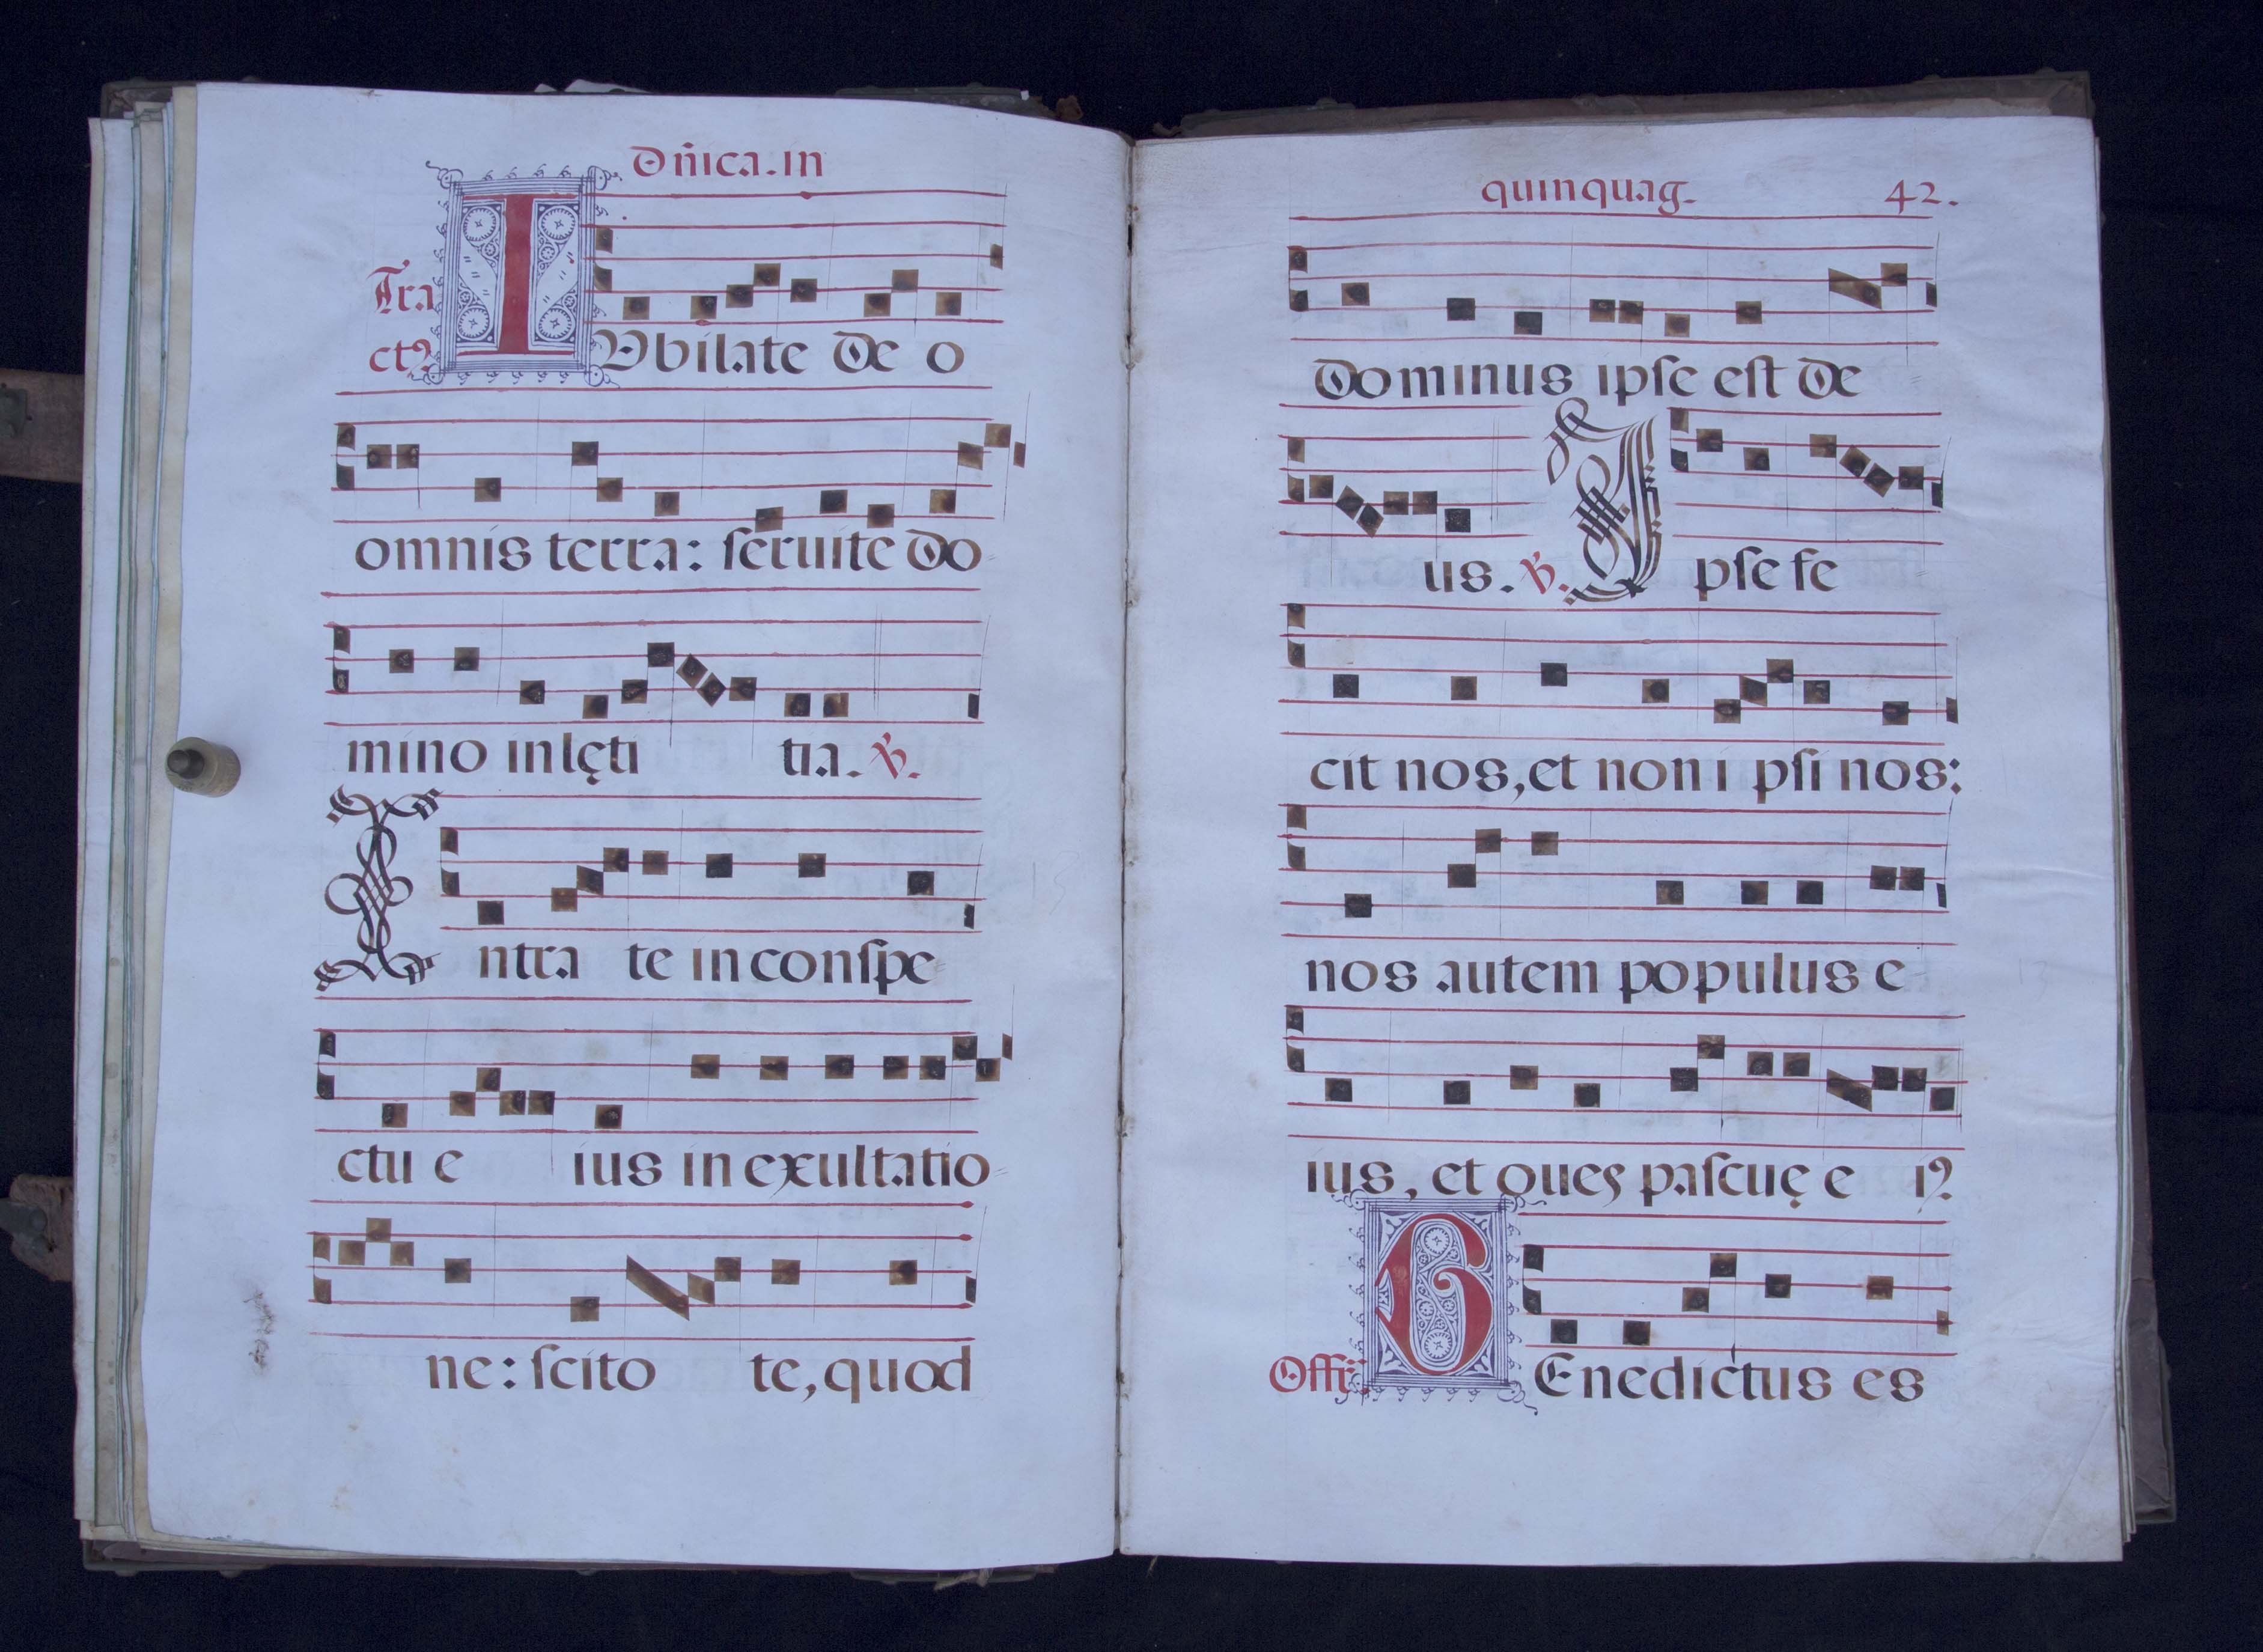 Dñica. in
Tractꝰ IVbilate De o
omnis terra: ſeruite Do
mino in lęti tia. ℣.
Intra te in conſpe
ctu e ius in exultatio
ne: ſcito te, quod
quinquag. 42.
Dominus ipſe eſt De
us. ℣. Ipſe fe
cit nos, et non i pſi nos:
nos autem populus e
ius, et oues paſcuę e iꝰ
Offꝫ. BEnedictus es